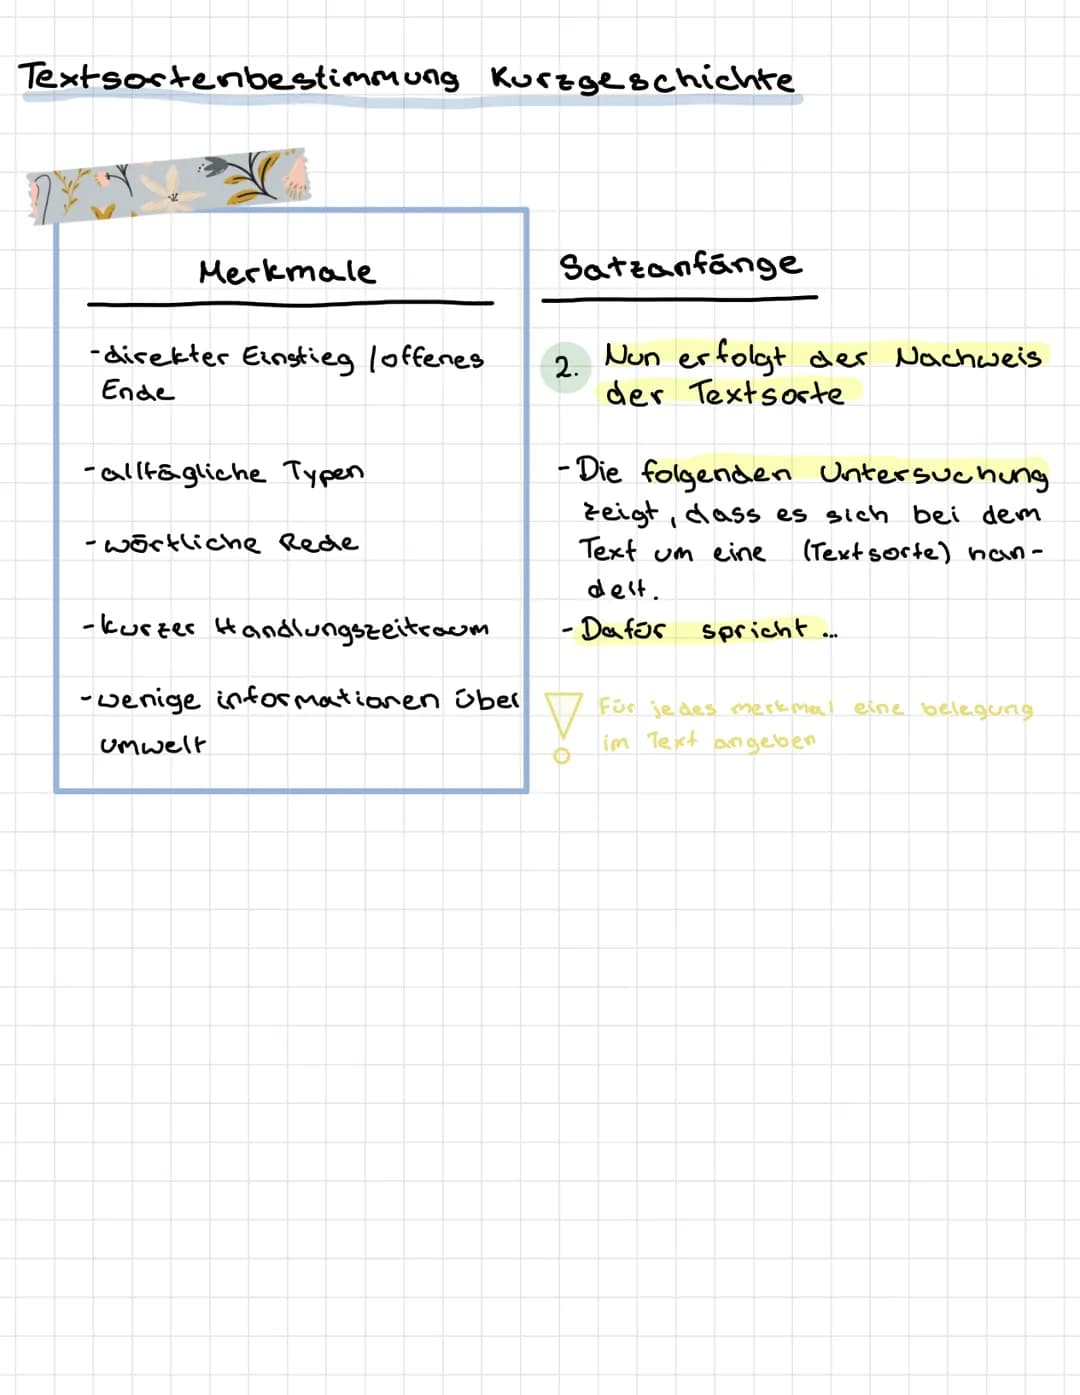 Textsortenbestimmung Kurzgeschichte
Merkmale
-direkter Einstieg / offenes
Ende
-alltägliche Typen
-wörtliche Rede
-kurzer Handlungszeitraum
-wenige informationen über
umwelt
Satzanfänge
2. Nun erfolgt der Nachweis
der Textsorte
-Die folgenden Untersuchung
zeigt, dass es sich bei dem
Text um eine (Textsorte) han-
delt.
-Dafür spricht ...
Für jedes merkmal eine belegung
im Text angeben